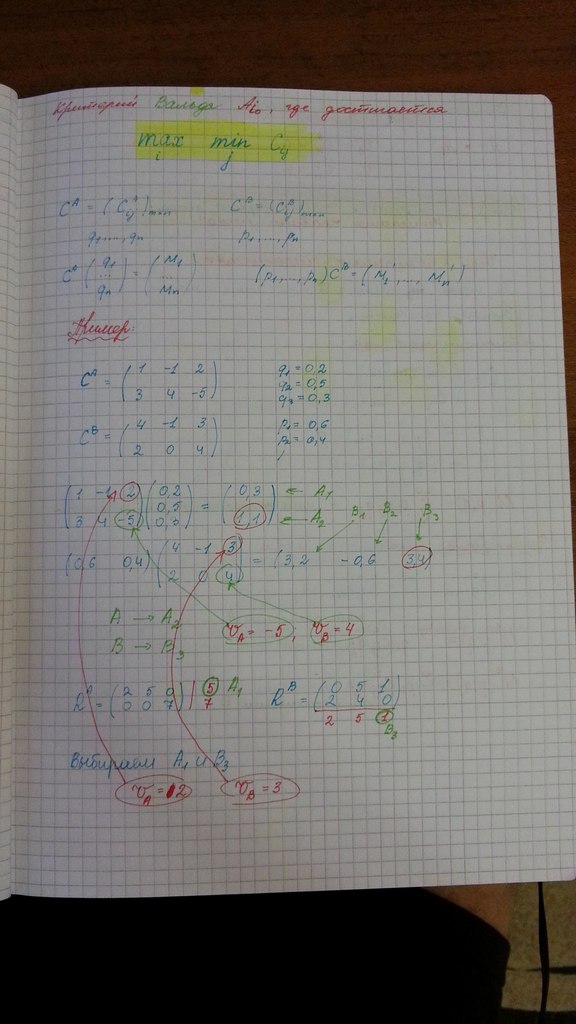 Критерий Вальда Ai₀, где достигается
max min Cij
i j
C^A = (C^A_ij)mxn C^B = (C^B_ij)mxn
q1,...,qn p1,...,pn
C^A (q1 ... qn) = (M1 ... Mn) (p1,...,pn) C^B = (M1',..., Mn')
Пример:
C^A = (1 -1 2
3 4 -5)
q1 = 0,2
q2 = 0,5
q3 = 0,3
C^B = (4 -1 3
2 0 4)
p1 = 0,6
p2 = 0,4
(1 -1 2 (0,2 (0,3 ← A1
0,5 =
3 4 -5) 0,3) 1,1) ← A2
B1 B2 B3
(0,6 0,4) (4 -1 3 = (3,2 -0,6 3,4)
2 0 4)
A → A2
B → B3
V_A = -5; V_B = 4
R^A = (2 5 0 | 5 A1
0 0 7) | 7
R^B = (0 5 1
2 4 0)
2 5 1
B3
Выбираем A1 и B3
V_A = 2 V_B = 3